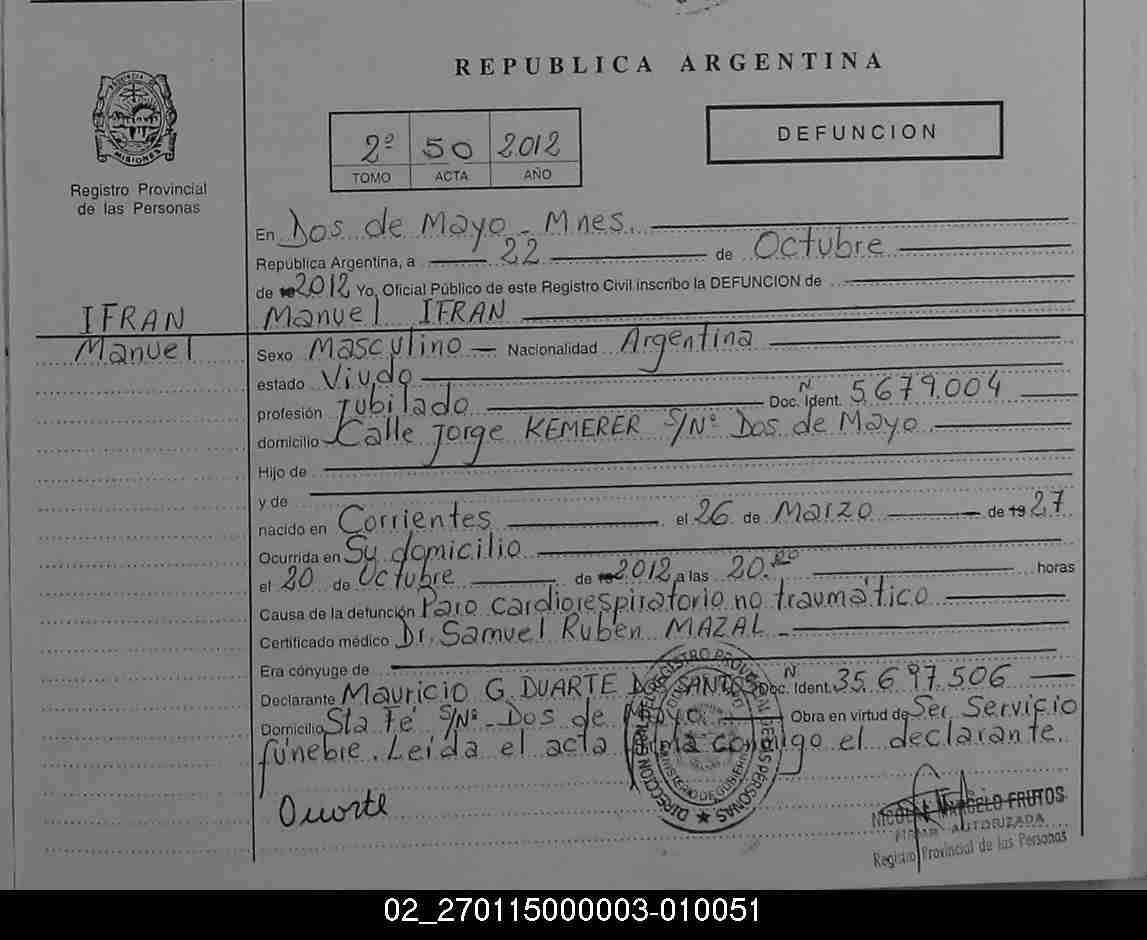 REPUBLICA ARGENTINA
MISIONES
2º 50 2012
TOMO ACTA AÑO
DEFUNCION
Registro Provincial
de las Personas
En Dos de Mayo - Mnes.
República Argentina, a 22 de Octubre
de 2012 Yo, Oficial Público de este Registro Civil inscribo la DEFUNCION de
IFRAN
Manuel
Manuel IFRAN
Sexo Masculino Nacionalidad Argentina
estado Viudo
profesión Jubilado Doc. Nº Ident. 5.679.004
domicilio Calle Jorge KEMERER S/Nº Dos de Mayo
Hijo de
y de
nacido en Corrientes el 26 de Marzo de 1927
Ocurrida en Su domicilio
el 20 de Octubre de 2012 a las 20.00 horas
Causa de la defunción Paro cardiorespiratorio no traumático
Certificado médico Dr. Samuel Ruben MAZAL -
Era cónyuge de
Declarante Mauricio G. DUARTE DOS SANTOS Doc. N Ident. 35.697.506
Domicilio Sta Fe S/Nº - Dos de Mayo Obra en virtud de Ser Servicio
fúnebre. Leída el acta firma conmigo el declarante.
Duarte
DIRECCION GENERAL DEL REGISTRO PROVINCIAL DE LAS PERSONAS
MINISTERIO DE GOBIERNO
MARCELO FRUTOS
FIRMA AUTORIZADA
Registro Provincial de las Personas
02_270115000003-010051